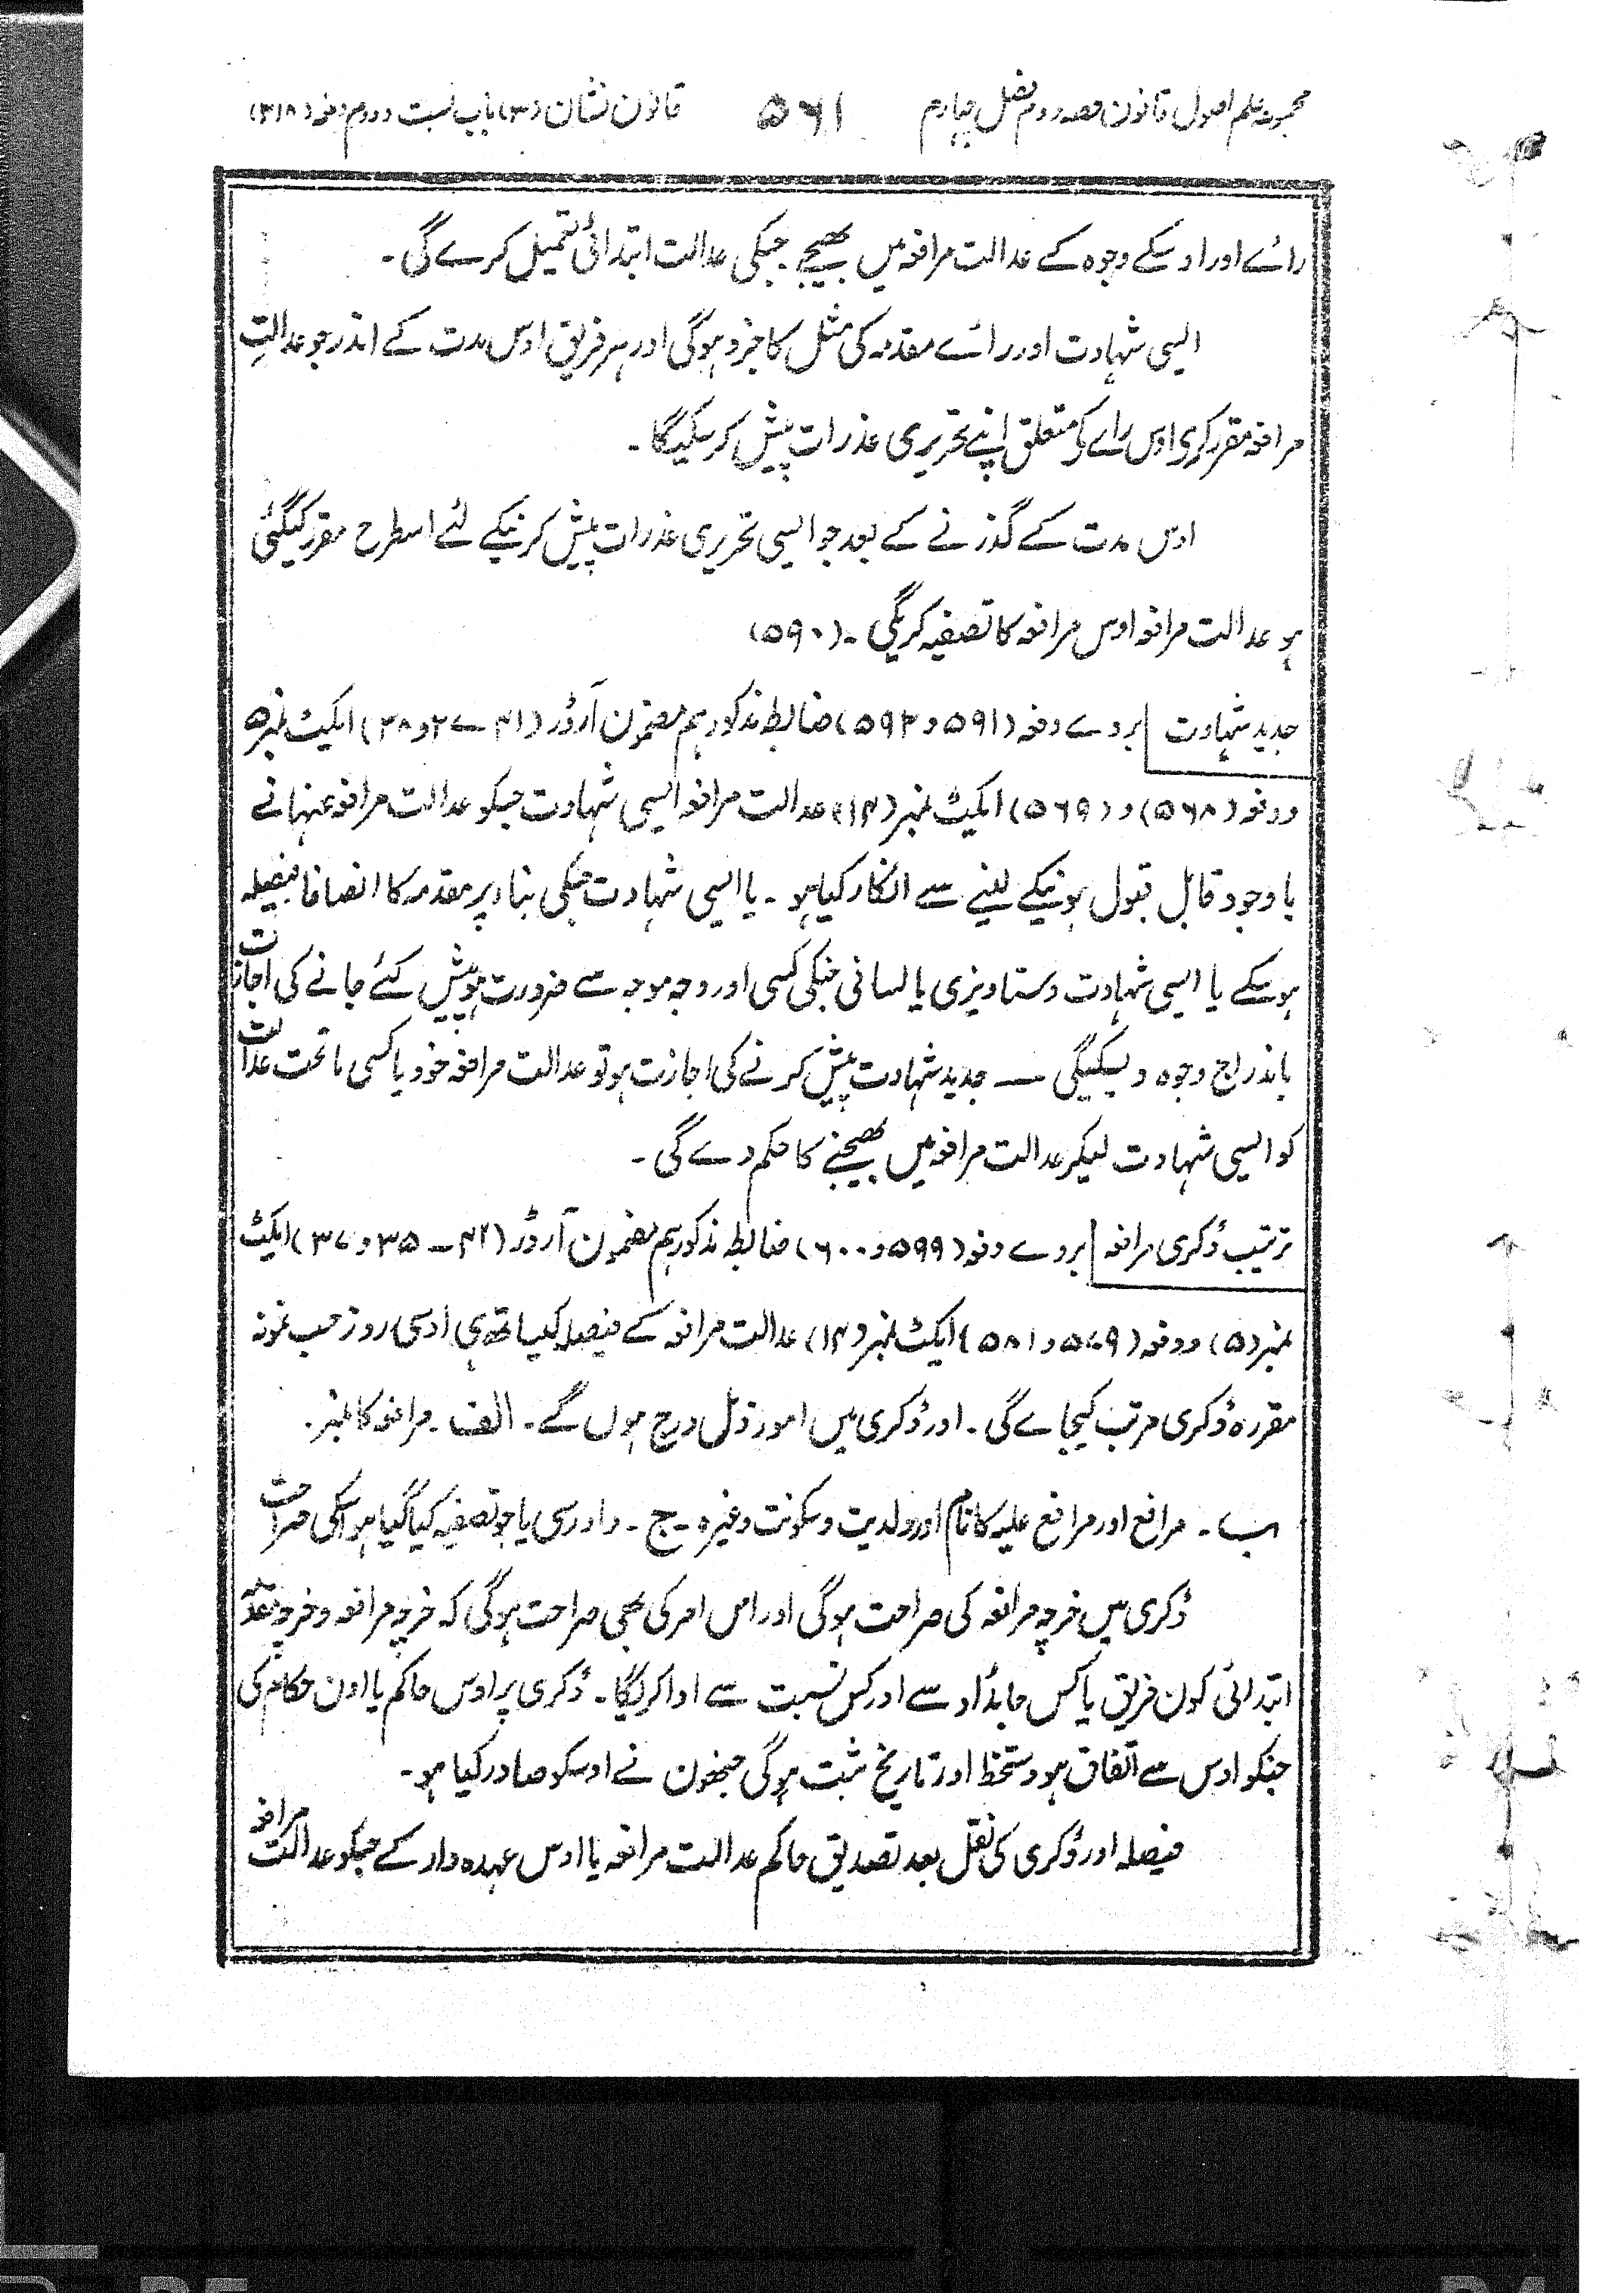 مجموعہ علم اصول قانون حصہ دوم فصل چہارم ۵۶۱ قانون نشان (۳) باب بست و دوم دفعہ (۳۱۸)
رائے اور اوسکے وجوہ کے عدالت مرافعہ میں بھیجے جسکی عدالت ابتدائی تعمیل کرے گی ۔
ایسی شہادت اور رائے مقدمہ کی مثل کا جزو ہوگی اور ہر فریق اوس مدت کے اندر جو عدالتِ
مرافعہ مقرر کری اوس رائے کو متعلق اپنے تحریری عذرات پیش کرسکیگا ۔
اوس مدت کے گذرنے کے بعد جو ایسی تحریری عذرات پیش کرنیکے لئے اسطرح مقرر کیگئی
ہو عدالت مرافعہ اوس مرافعہ کا تصفیہ کریگی ۔ (۵۹۰)
جدید شہادت بروے دفعہ (۵۹۱ و ۵۹۲) ضابطہ مذکور ہم مضمون آرڈر (۴۱ - ۲۷ و ۲۸) ایکٹ نمبر ۵
و دفعہ (۵۶۸) و (۵۶۹) ایکٹ نمبر (۱۴) عدالت مرافعہ ایسی شہادت جسکو عدالت مرافعہ عنہانے
باوجود قابل قبول ہونیکے لینے سے انکار کیا ہو ۔ یا ایسی شہادت جسکی بناء پر مقدمہ کا انصافا فیصلہ
ہوسکے یا ایسی شہادت دستاویزی یا لسانی جنکی کسی اور وجہ موجہ سے ضرورت ہو پیش کئے جانے کی اجازت
باندراج وجوہ دیسکیگی — جدید شہادت پیش کرنے کی اجازت ہو تو عدالت مرافعہ خود یا کسی ماتحت عدالت
کو ایسی شہادت لیکر عدالت مرافعہ میں بھیجنے کا حکم دے گی ۔
ترتیب ڈکری مرافعہ بروے دفعہ (۵۹۹ و ۶۰۰) ضابطہ مذکور ہم مضمون آرڈر (۴۱ ـ ۳۵ و ۳۷) ایکٹ
نمبر (۵) و دفعہ (۵۷۹ و ۵۸۱) ایکٹ نمبر (۱۴) عدالت مرافعہ کے فیصلہ کیساتھ ہی اوسی روز حسب نمونہ
مقررہ ڈکری مرتب کیجاے گی ۔ اور ڈکری میں امور ذیل درج ہوں گے ۔ الف ۔ مرافعہ کا نمبر ۔
ب ۔ مرافع اور مرافع علیہ کا نام اور ولدیت و سکونت وغیرہ ۔ ج ۔ دادرسی یا جو تصفیہ کیا گیا ہو اسکی صراحت
ڈکری میں خرچہ مرافعہ کی صراحت ہوگی اور اس امر کی بھی صراحت ہوگی کہ خرچہ مرافعہ و خرچہ مقدمہ
ابتدائی کون فریق یا کس جائداد سے اور کس نسبت سے ادا کریگا ۔ ڈکری پر اوس حاکم یا اون حکام کی
جنکو اوس سے اتفاق ہو دستخط اور تاریخ ثبت ہوگی جنھون نے اوسکو صادر کیا ہو ۔
فیصلہ اور ڈکری کی نقل بعد تصدیق حاکم عدالت مرافعہ یا اوس عہدہ دار کے جسکو عدالت مرافعہ